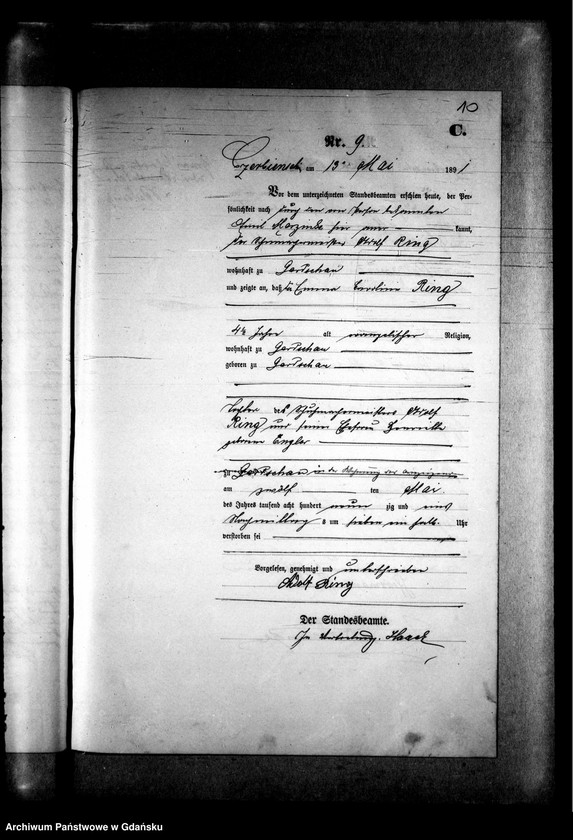 10
C.
Nr. 9.
Czerbienschin am 13. Mai 1891
Vor dem unterzeichneten Standesbeamten erschien heute, der Per-
sönlichkeit nach durch den von Person bekannten
kannt,
der Schuhmachermeister Adolf Ring
wohnhaft zu Gardschau
und zeigte an, daß die Emma Caroline Ring
4¾ Jahre alt evangelischer Religion,
wohnhaft zu Gardschau
geboren zu Gardschau
Tochter des Schuhmachermeisters Adolf
Ring und seiner Ehefrau Henriette
geborene Engler
zu Gardschau in der Wohnung des Anzeigenden
am zwölften Mai
des Jahres tausend acht hundert neunzig und eins
Nachmittag s um sieben ein halb Uhr
verstorben sei
Vorgelesen, genehmigt und unterschrieben
Adolf Ring
Der Standesbeamte.
In Vertretung. Haack
Archiwum Państwowe w Gdańsku